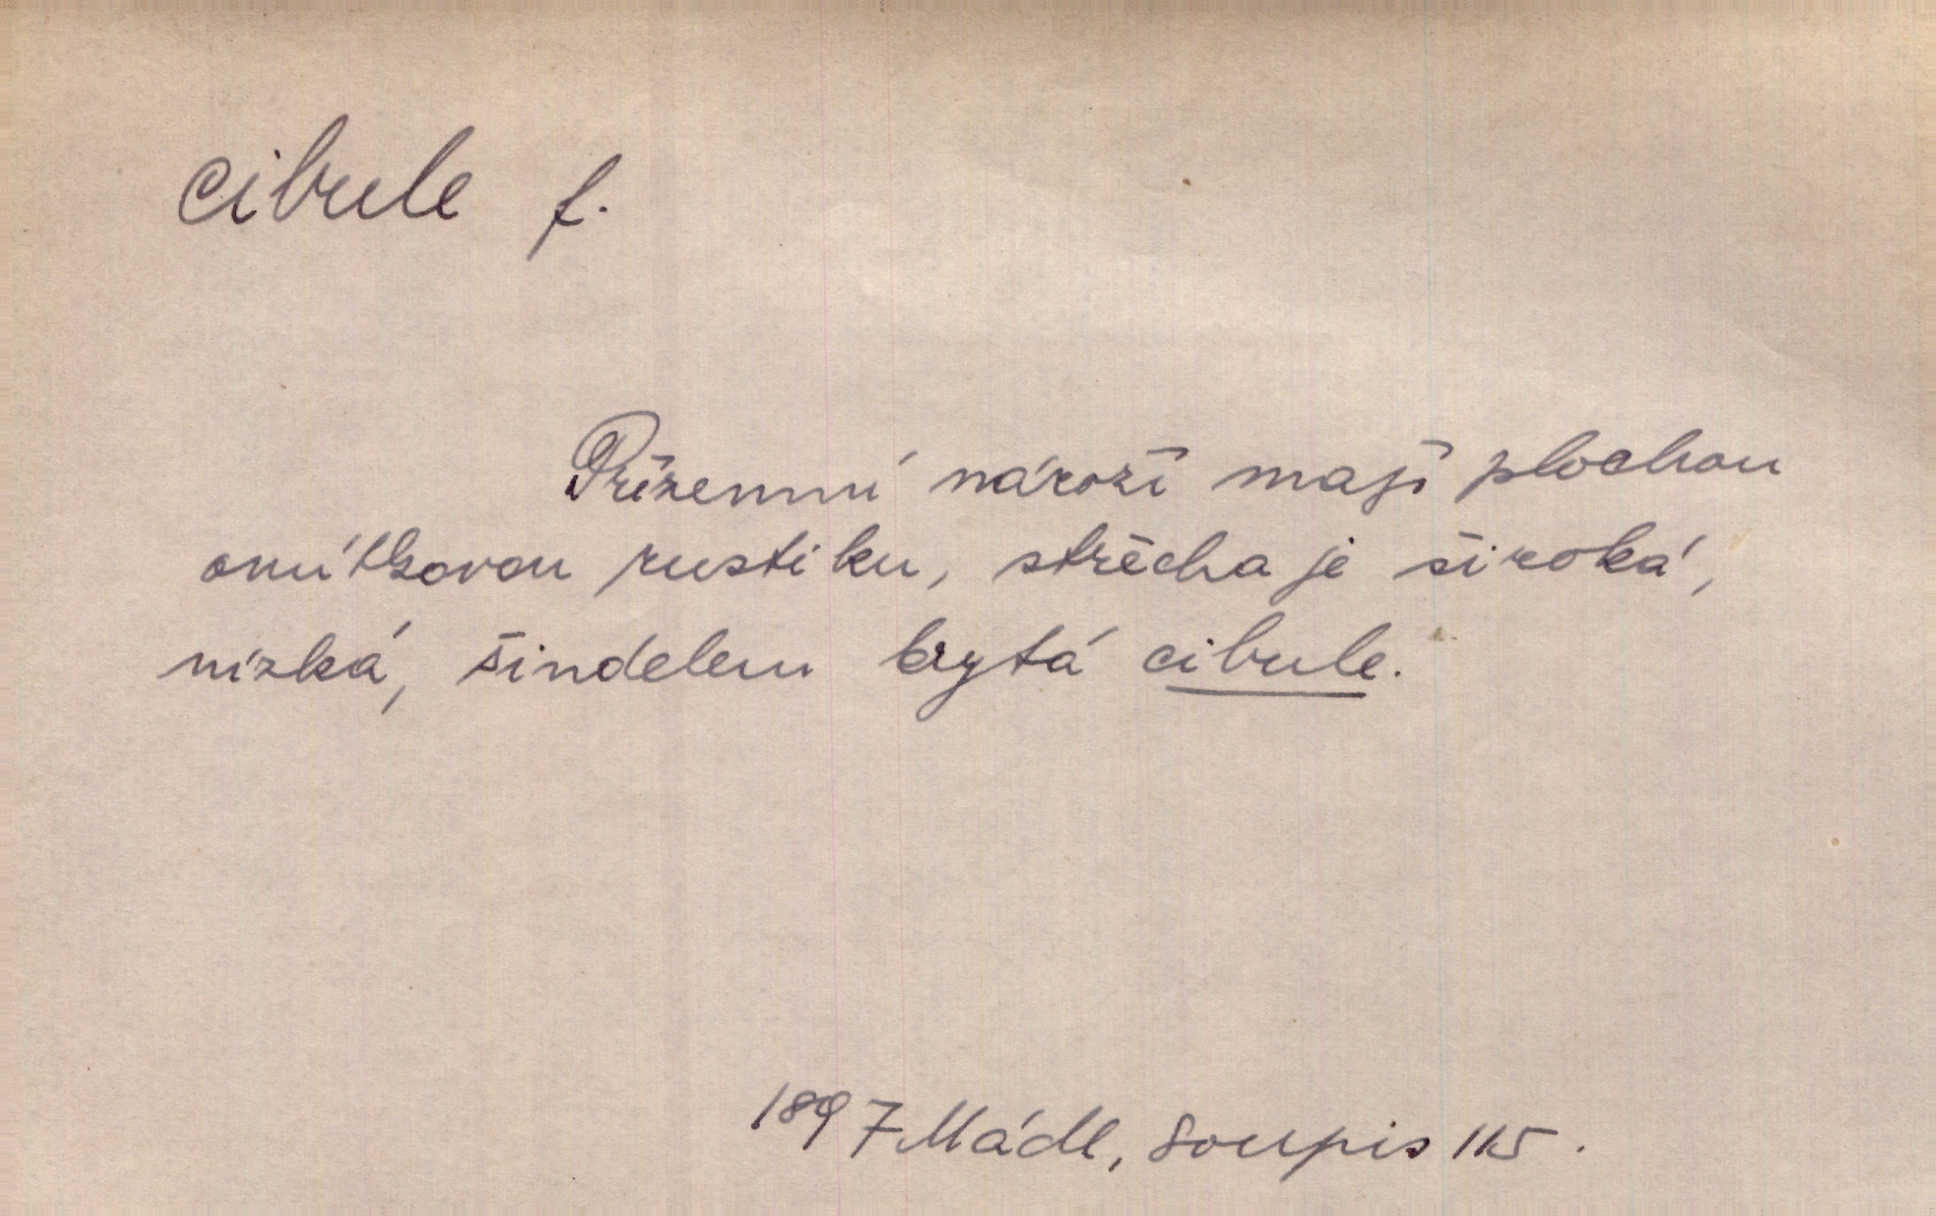 cibule f.
Přízemní nároží mají plochou
omítkovou rustiku, střecha je široká,
nízká, šindelem krytá cibule.
1897 Mádl, Soupis 115.